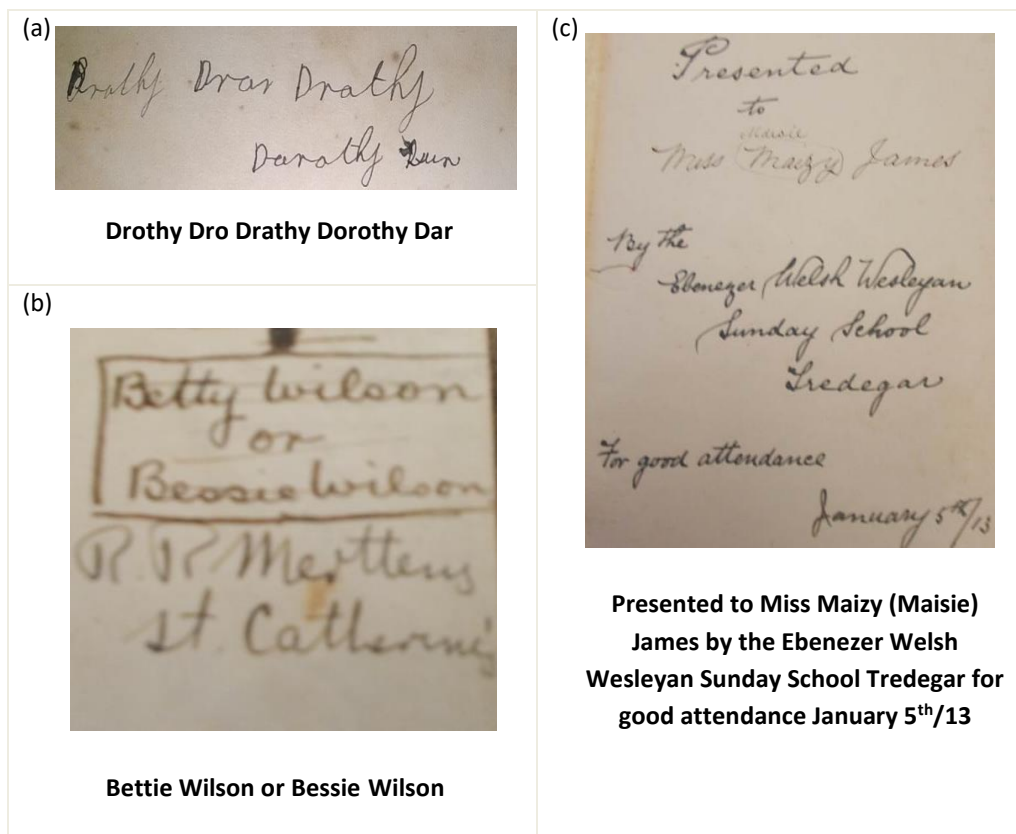 (a)
Drothy Drar Drathy
Darothy
Drothy Dro Drathy Dorothy Dar
(b)
Betty Wilson
or
Bessie Wilson
R. R. Merttens
St. Catherine's
Bettie Wilson or Bessie Wilson
(c)
Presented
to
Maisie
Miss Maizy James
By the
Ebenezer Welsh Wesleyan
Sunday School
Tredegar
For good attendance
January 5th/13
Presented to Miss Maizy (Maisie)
James by the Ebenezer Welsh
Wesleyan Sunday School Tredegar for
good attendance January 5th/13